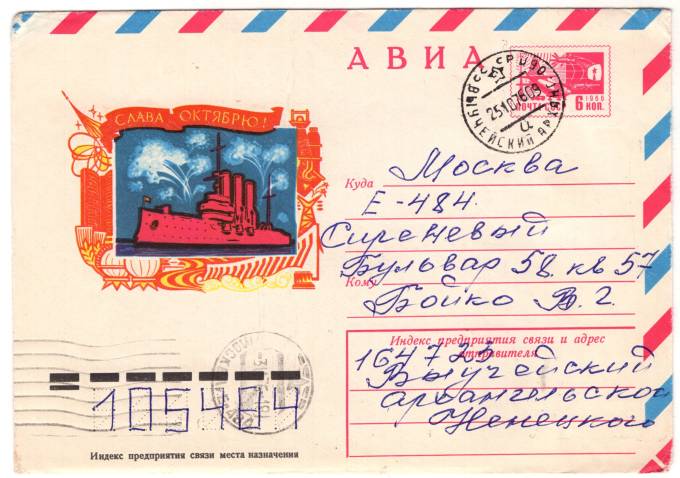 АВИА
СЛАВА ОКТЯБРЮ!
ПОЧТА
1966
6 КОП.
СССР
251076
ВЫУЧЕЙСКИЙ АРХ
Куда
Москва
Е-484.
Сиреневый
Бульвар 58 кв 57
Кому
Бойко В. Г.
Индекс предприятия связи и адрес
отправителя
164723
Выучейский
архангельской
Ненецкого
МОСКВА
105484
Индекс предприятия связи места назначения